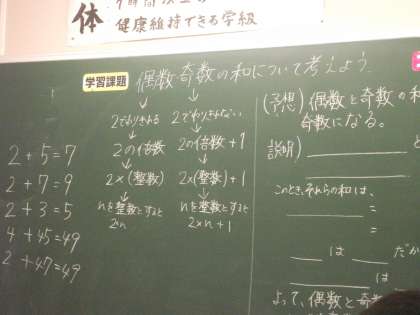 体
健康維持できる学級
学習課題 偶数・奇数の和について考えよう.
2でわりきれる
2の倍数
2×(整数)
nを整数とすると
2n
2でわりきれない
2の倍数+1
2×(整数)+1
nを整数とすると
2×n+1
2+5=7
2+7=9
2+3=5
4+45=49
2+47=49
(予想) 偶数と奇数の和
奇数になる。
説明)
と
このとき、それらの和は、
=
=
は だか
よって、偶数と奇数